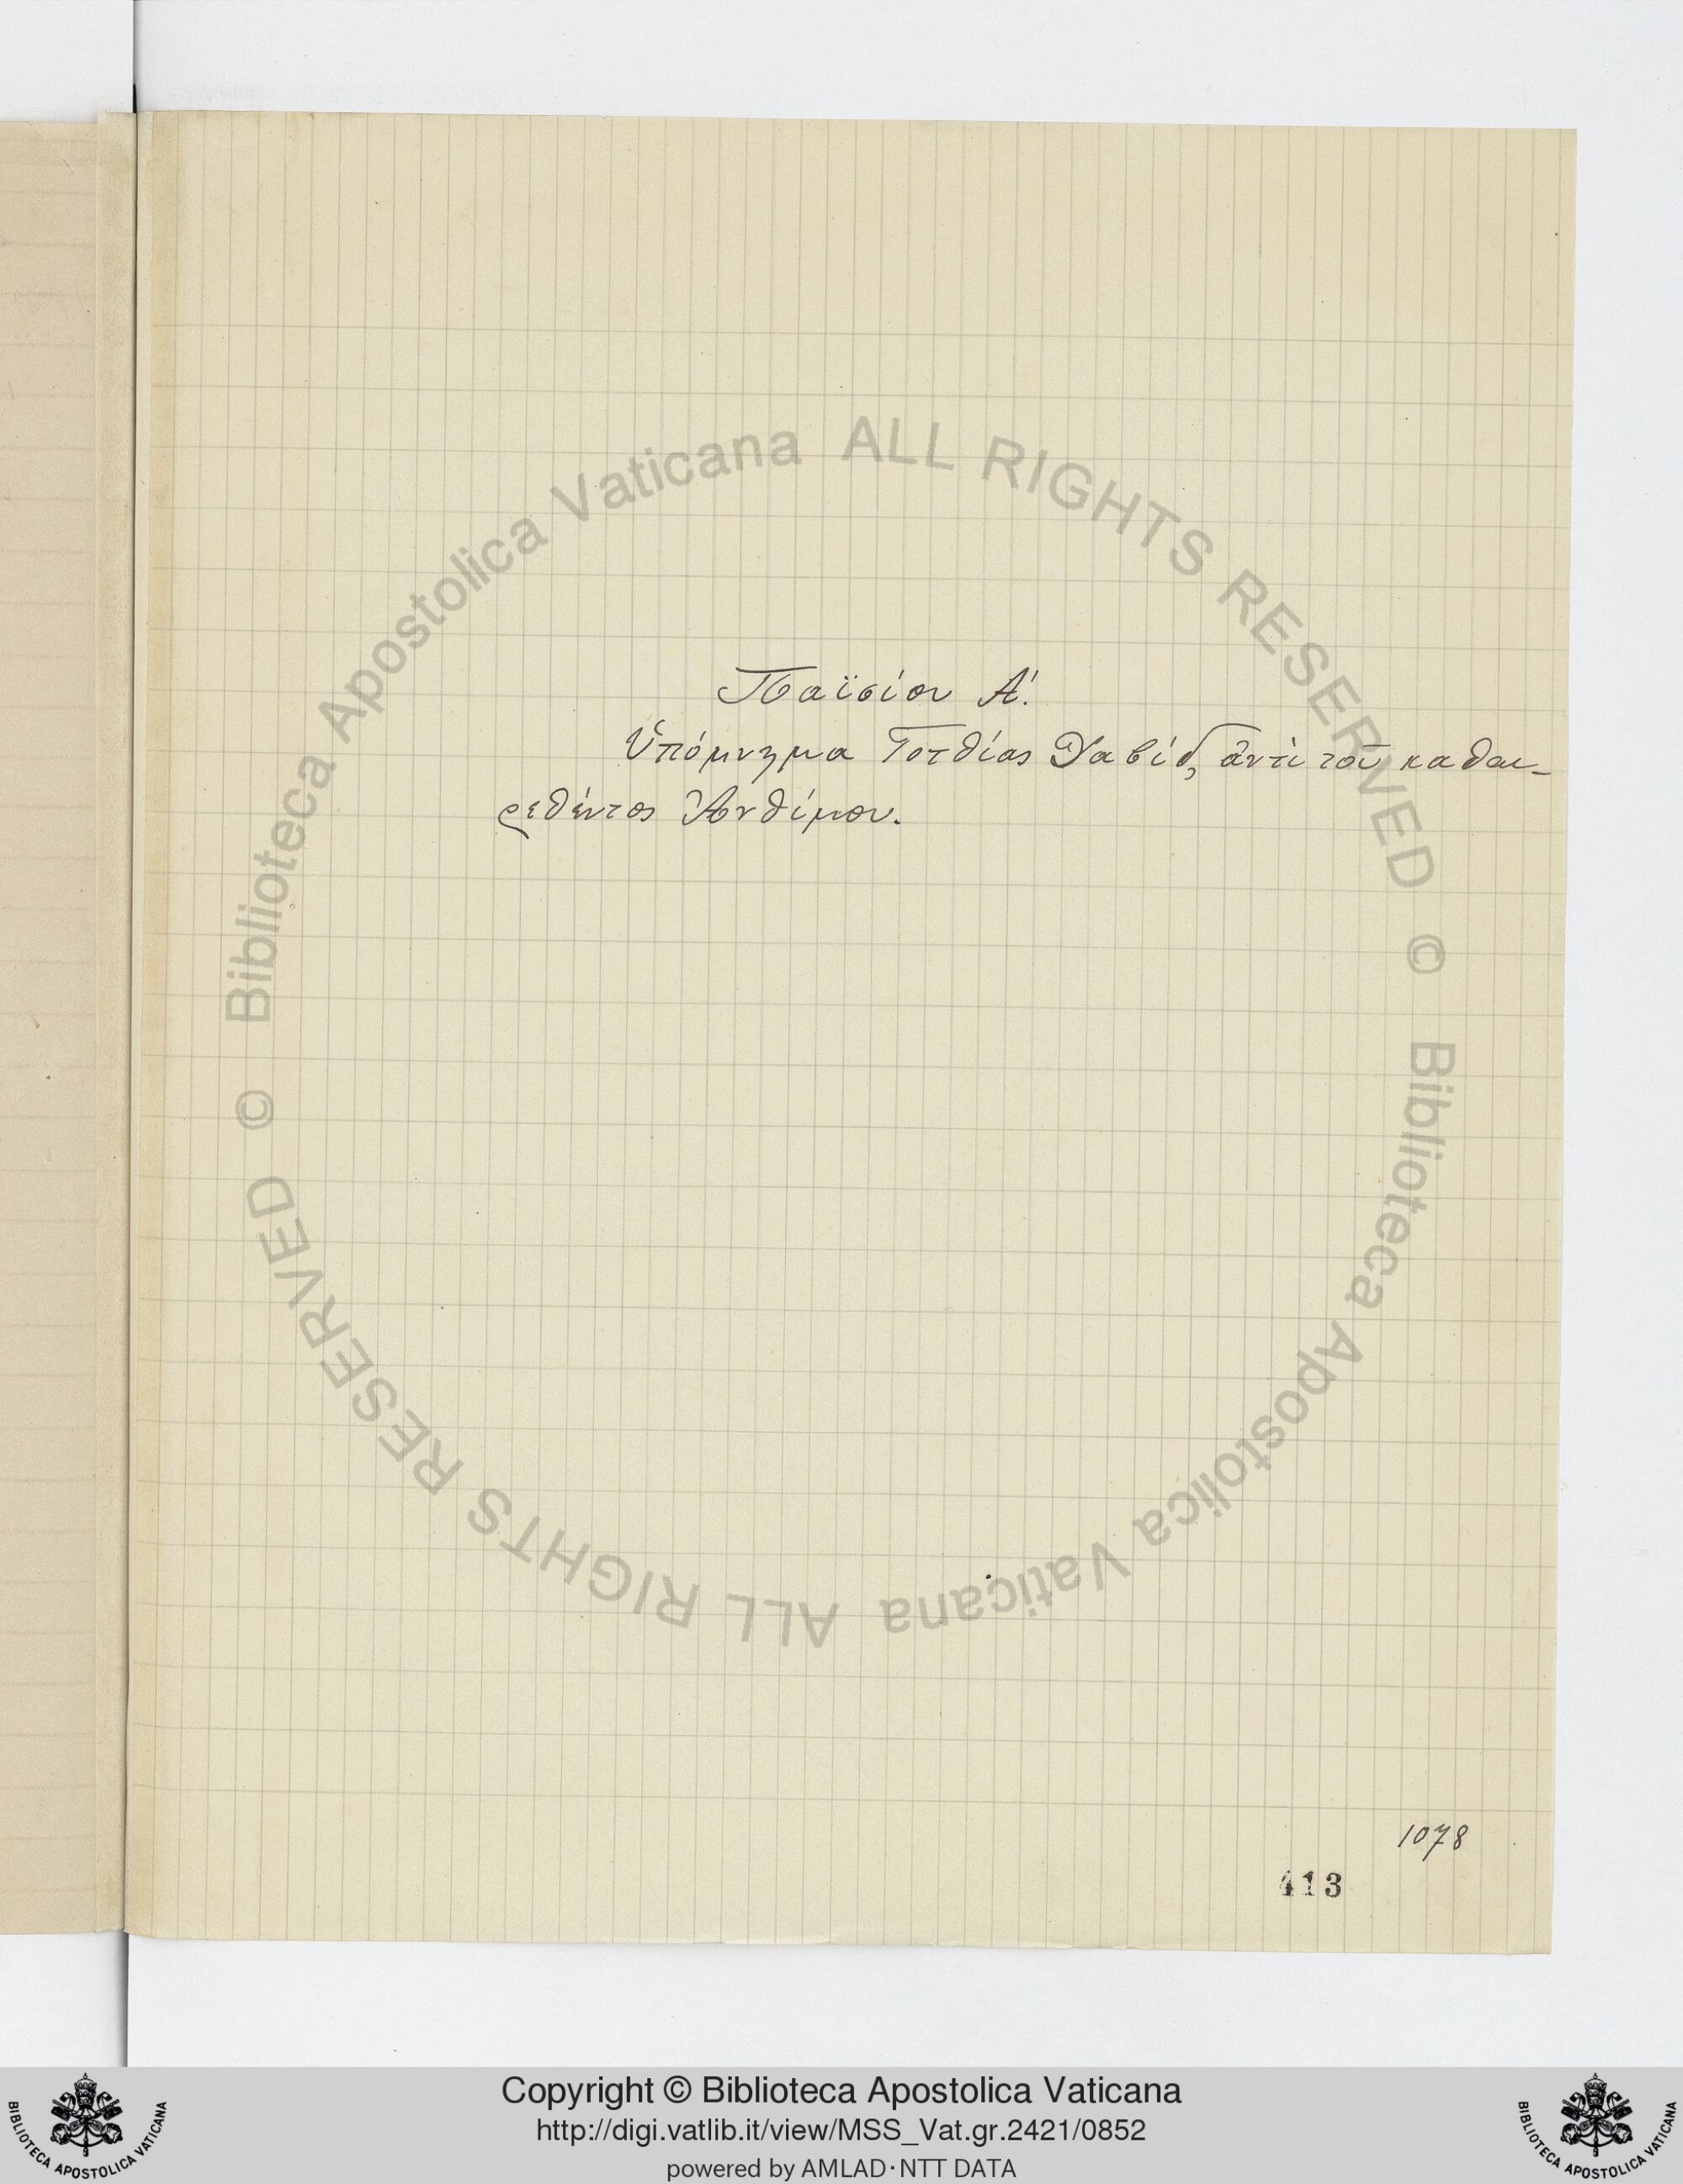 Παϊσίου Α΄.
Ὑπόμνημα Γοτθίας Δαβίδ, ἀντὶ τοῦ καθαι-
ρεθέντος Ἀνθίμου.
1078
413
© Biblioteca Apostolica Vaticana ALL RIGHTS RESERVED
© Biblioteca Apostolica Vaticana ALL RIGHTS RESERVED
Copyright © Biblioteca Apostolica Vaticana
http://digi.vatlib.it/view/MSS_Vat.gr.2421/0852
powered by AMLAD·NTT DATA
BIBLIOTECA APOSTOLICA VATICANA
BIBLIOTECA APOSTOLICA VATICANA